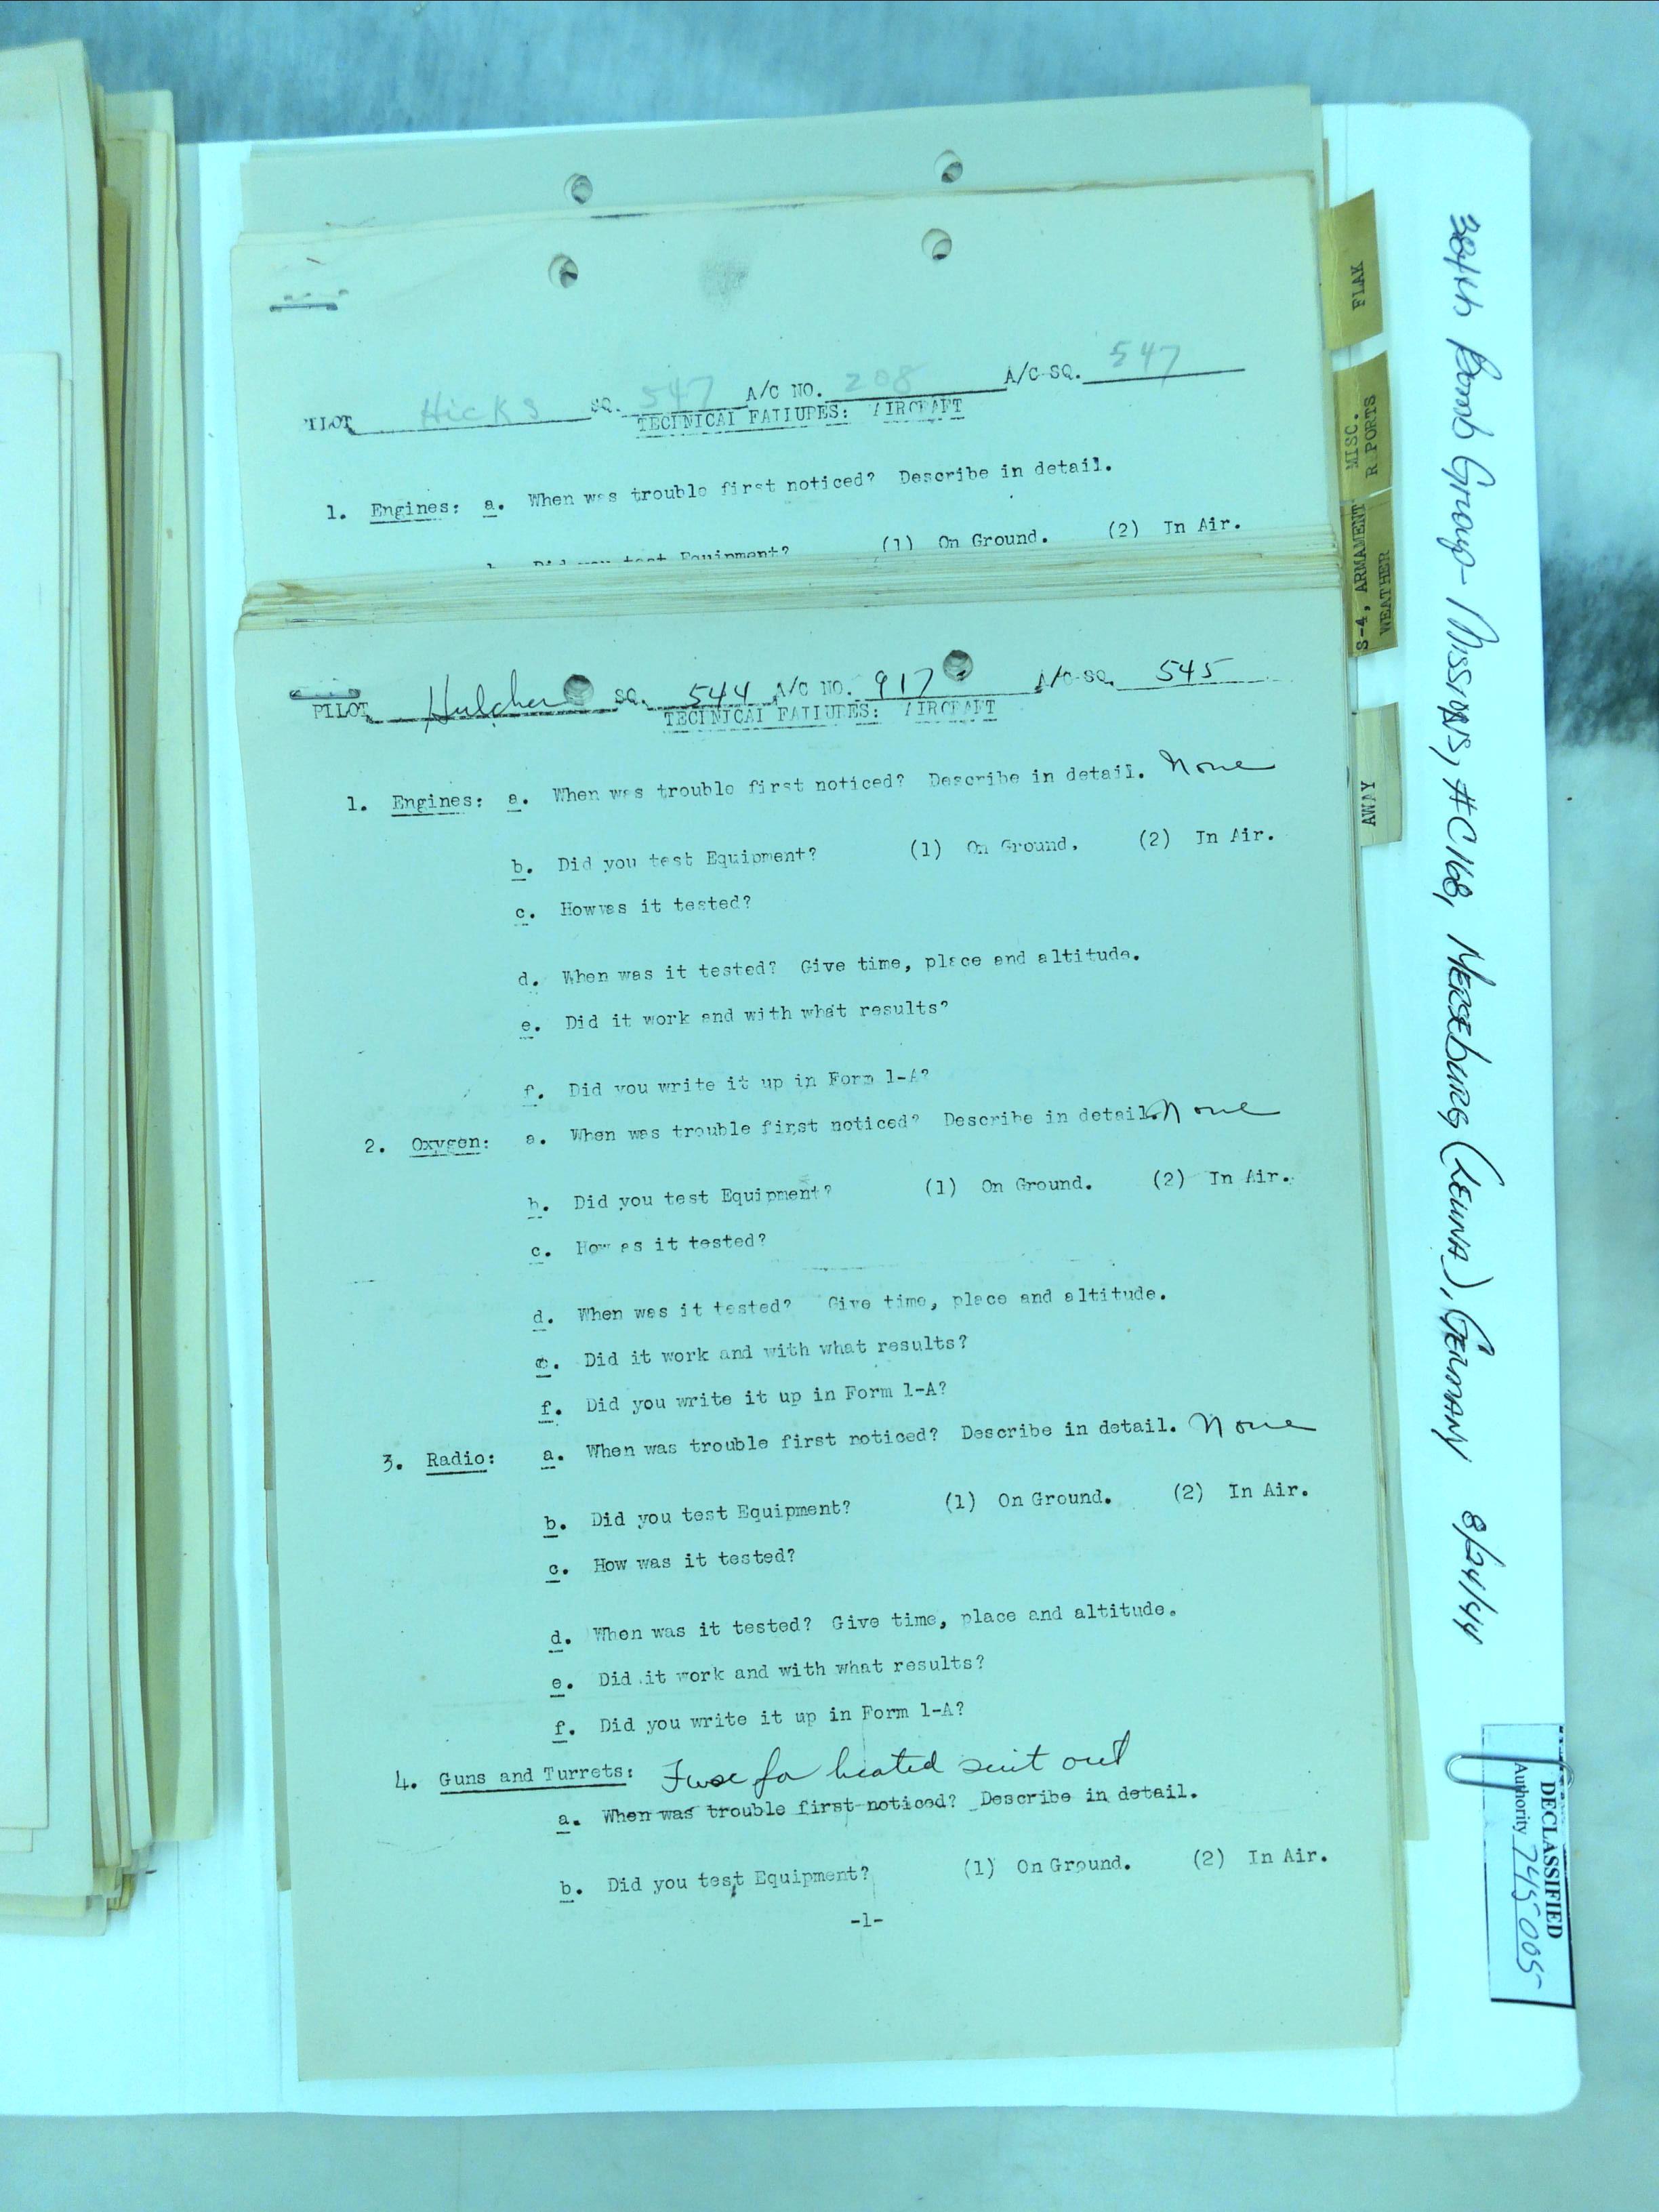 PILOT Hicks SQ. 547 A/C NO. 208 A/C SQ. 547
TECHNICAL FAILURES: AIRCRAFT
1. Engines: a. When was trouble first noticed? Describe in detail.
b. Did you test Equipment? (1) On Ground. (2) In Air.
PILOT Hulcher SQ. 544 A/C NO. 917 A/C SQ. 545
TECHNICAL FAILURES: AIRCRAFT
1. Engines: a. When was trouble first noticed? Describe in detail. None
b. Did you test Equipment? (1) On Ground. (2) In Air.
c. How was it tested?
d. When was it tested? Give time, place and altitude.
e. Did it work and with what results?
f. Did you write it up in Form 1-A?
2. Oxygen: a. When was trouble first noticed? Describe in detail. None
b. Did you test Equipment? (1) On Ground. (2) In Air.
c. How as it tested?
d. When was it tested? Give time, place and altitude.
e. Did it work and with what results?
f. Did you write it up in Form 1-A?
3. Radio: a. When was trouble first noticed? Describe in detail. None
b. Did you test Equipment? (1) On Ground. (2) In Air.
c. How was it tested?
d. When was it tested? Give time, place and altitude.
e. Did it work and with what results?
f. Did you write it up in Form 1-A?
4. Guns and Turrets: Fuse for heated suit out
a. When was trouble first noticed? Describe in detail.
b. Did you test Equipment? (1) On Ground. (2) In Air.
-1-
FLAK
MISC.
R PORTS
S-4, ARMAMENT
WEATHER
AWAY
384th Bomb Group - Missions, #C168, Merseburg (Leuna), Germany 8/24/44
DECLASSIFIED
Authority 745005